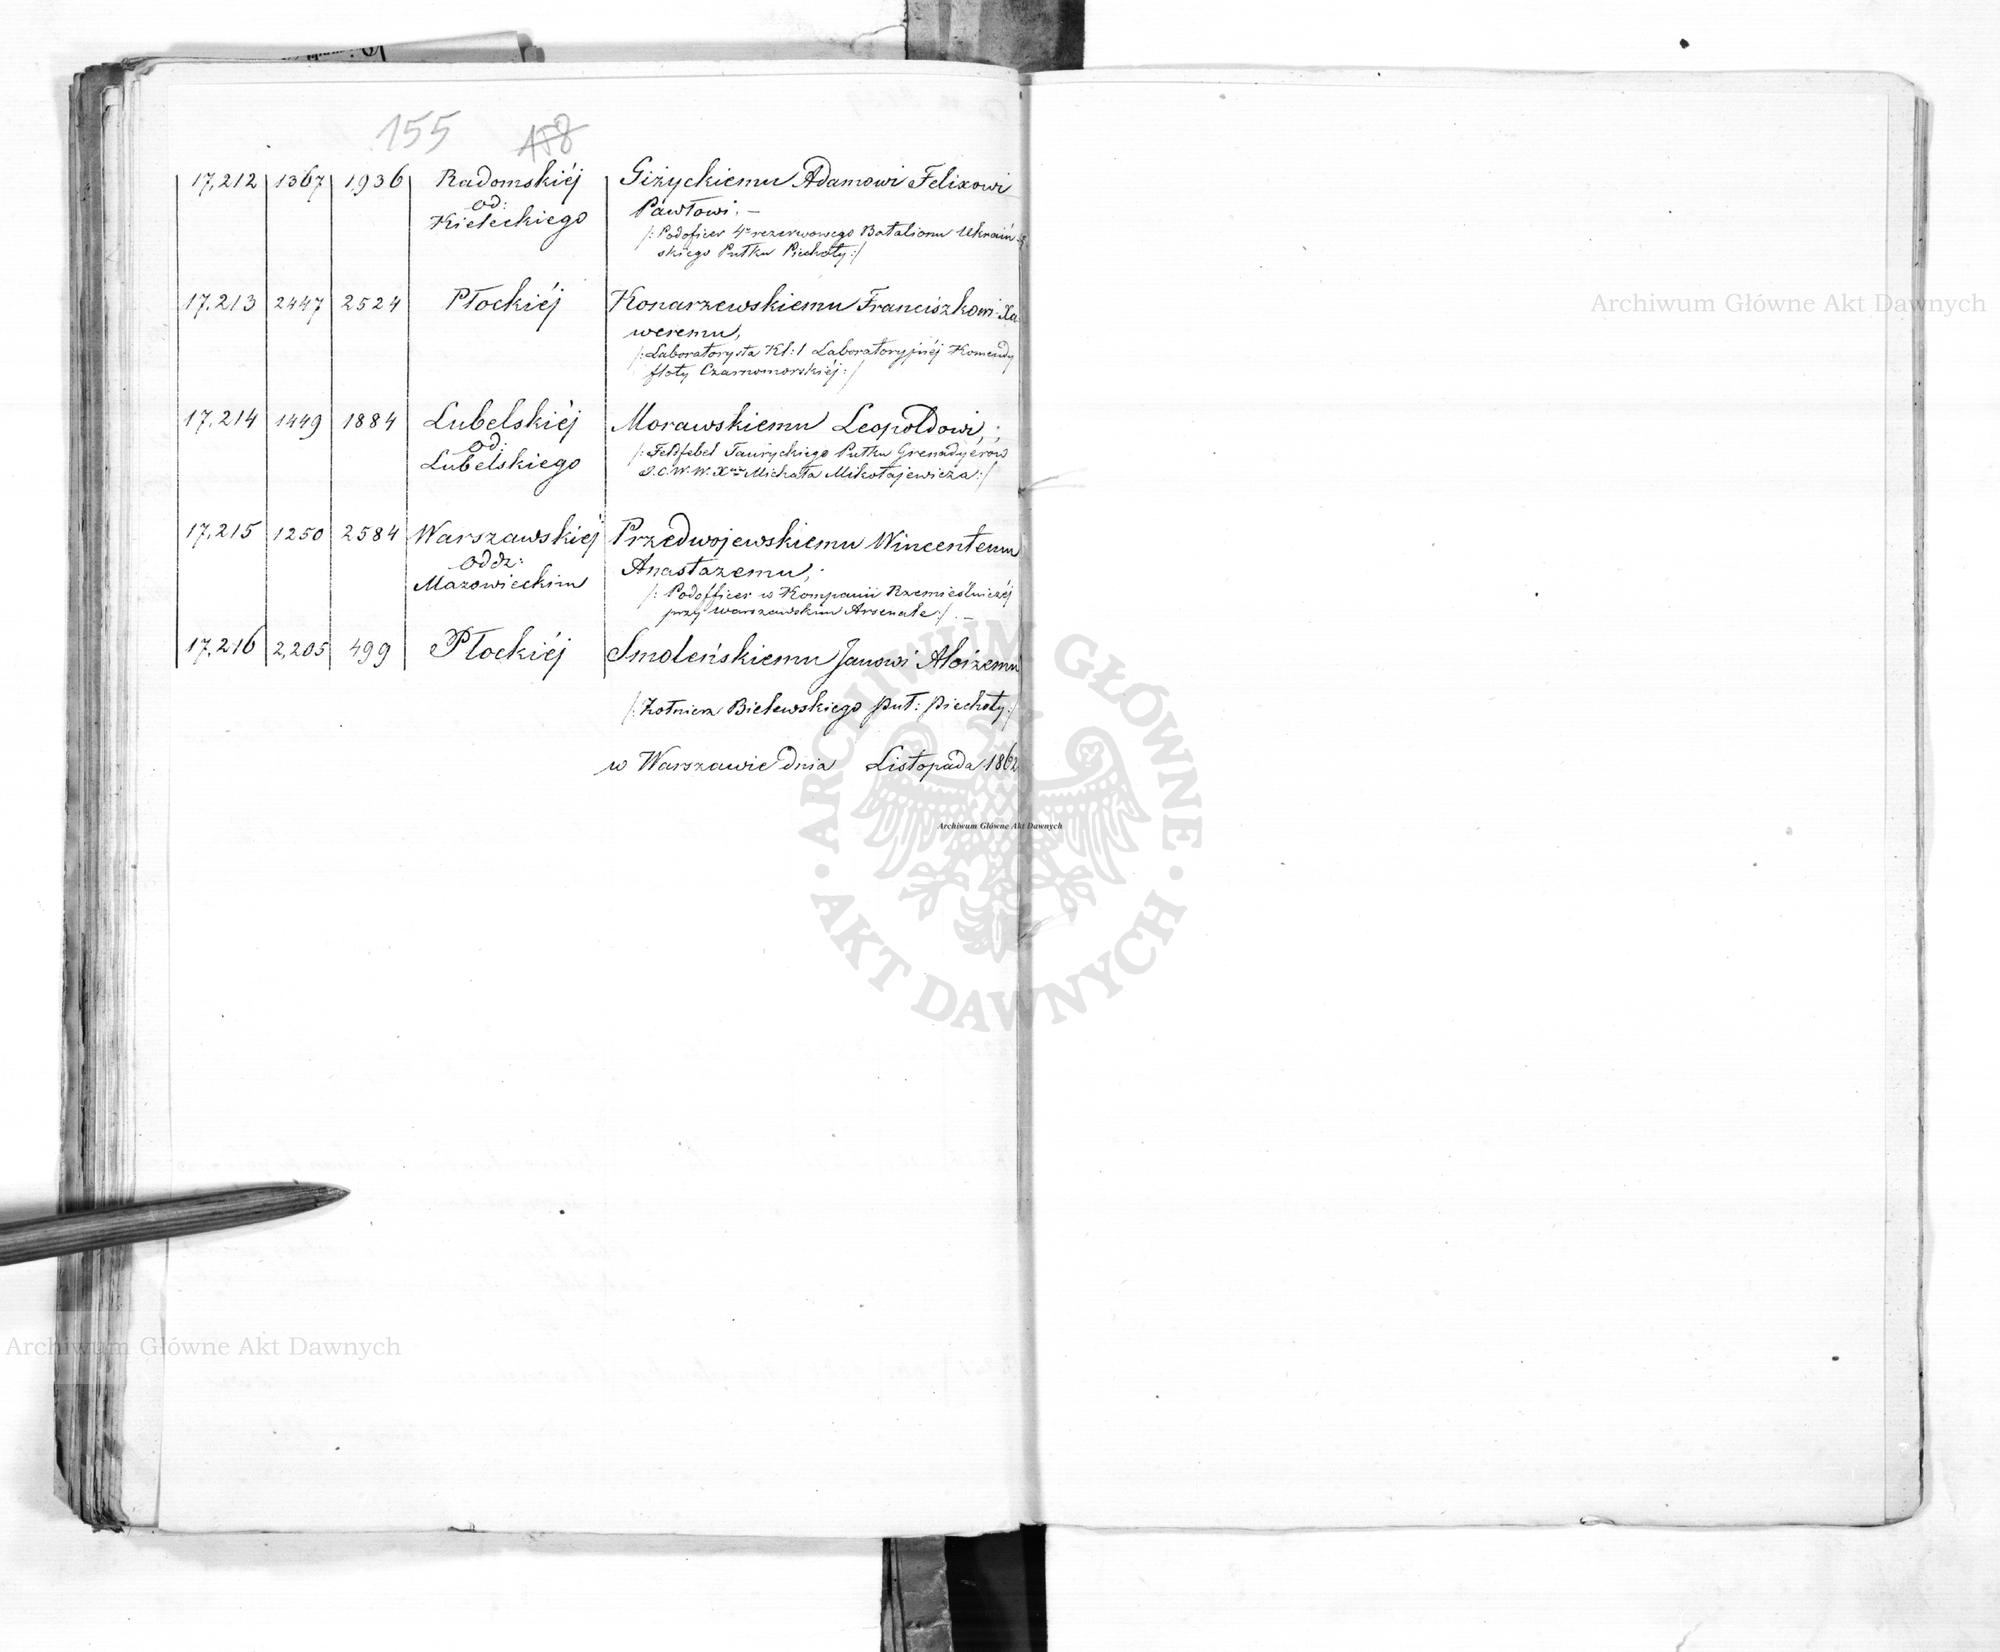 155 158
17,212 1367 1,936 Radomskiéj Giżyckiemu Adamowi Felixowi
od: Pawłowi. –
Kieleckiego /: Podoficer 4º rezerwowego Batalionu Ukraiń-
skiego Pułku Piechoty :/
17,213 2447 2524 Płockiéj Konarzewskiemu Franciszkowi Xa-
weremu,
/: Laboratorysta Kl: 1 Laboratoryjnéj Komendy
floty Czarnomorskiéj :/
17,214 1449 1884 Lubelskiéj Morawskiemu Leopoldowi,;
od: /: Feldfebel Tauryckiego Pułku Grenadyerów
Lubelskiego J.C.W.W. Xcia Michała Mikołajewicza :/
17,215 1250 2584 Warszawskiéj Przedwojewskiemu Wincentemu
oddz: Anastazemu;
Mazowieckim /: Podofficer w Kompanii Rzemieślniczéj
przy Warszawskim Arsenale :/. –
17,216 2,205 499 Płockiéj Smoleńskiemu Janowi Aloizemu
/: Żołnierz Bielewskiego puł: piechoty :/
w Warszawie dnia Listopada 1862
Archiwum Główne Akt Dawnych
ARCHIWUM GŁÓWNE
AKT DAWNYCH
Archiwum Główne Akt Dawnych
Archiwum Główne Akt Dawnych